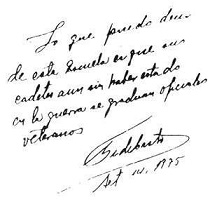 Lo que puedo decir
de esta Escuela es que sus
cadetes aun sin haber estado
en la guerra se graduan oficiales
veteranos
Fidel Castro
Set 14, 1975